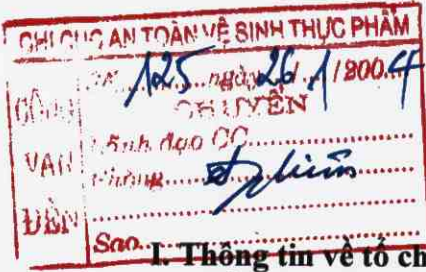 CHI CỤC AN TOÀN VỆ SINH THỰC PHẨM
CÔNG VĂN ĐẾN
125 ngày 26/1/200
CHUYỂN
Lãnh đạo CC
Phòng
Sao
I. Thông tin về tổ ch